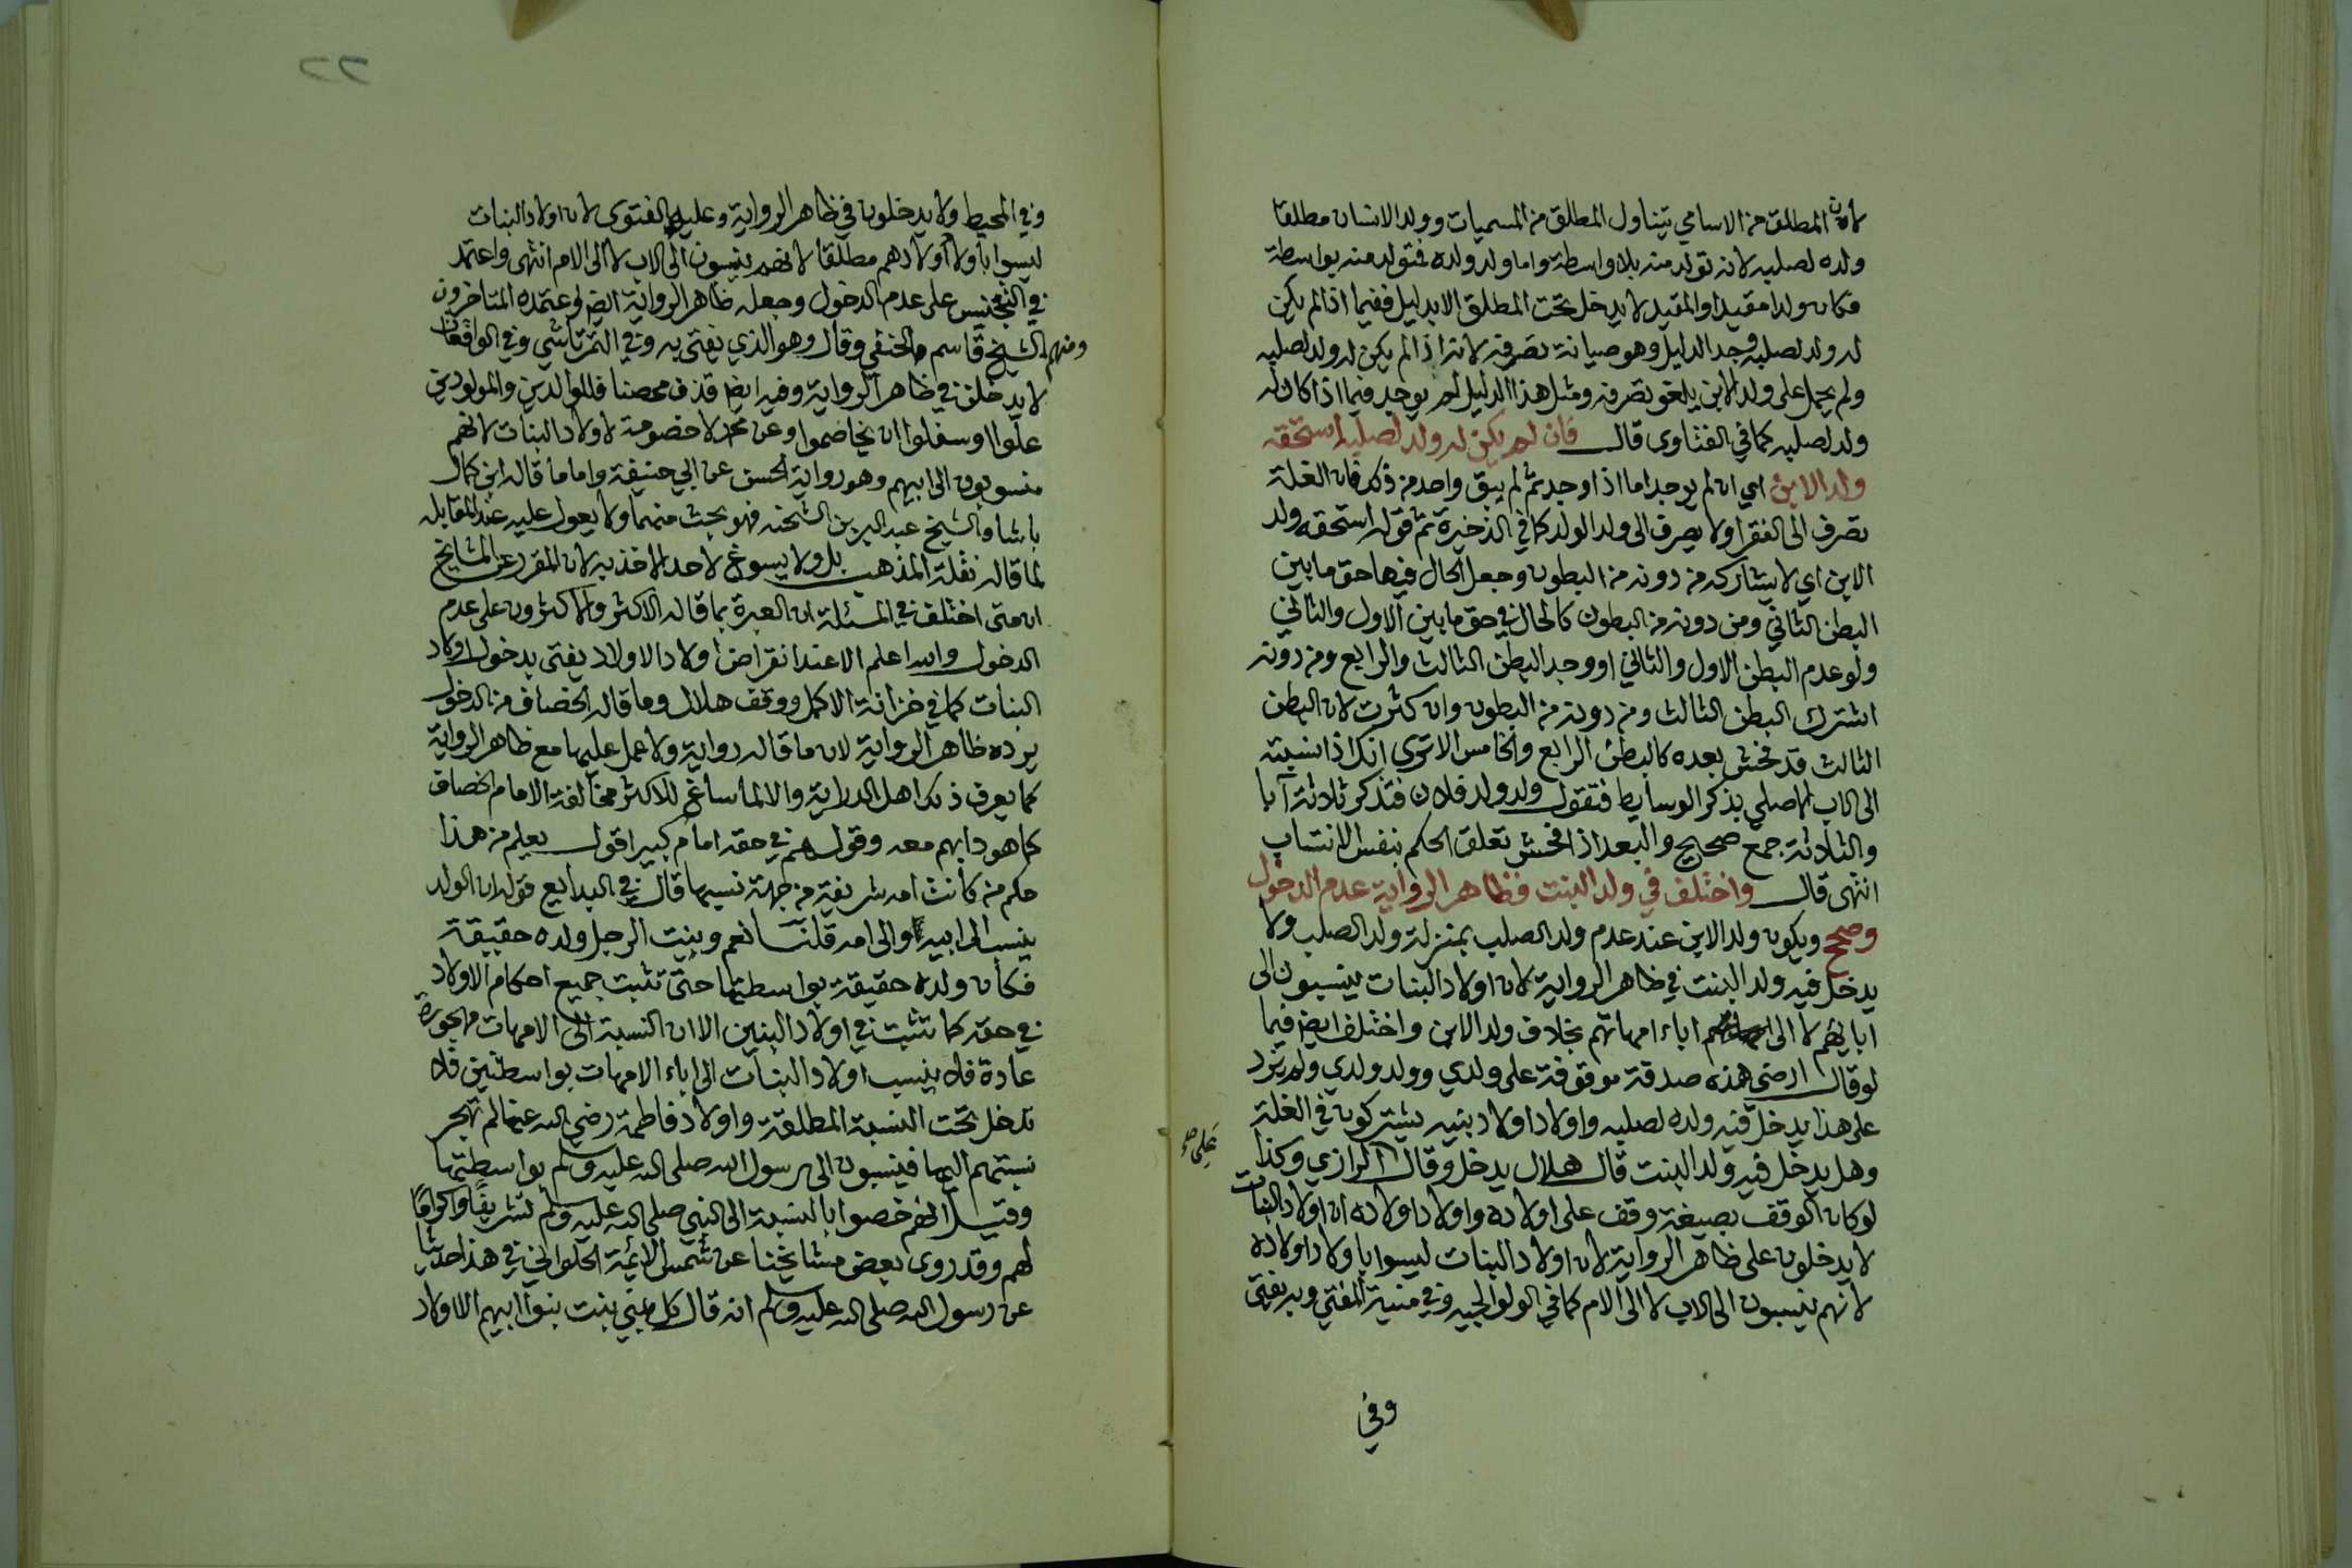 لان المطلق من الاسامي يتناول المطلق من المسميات وولد الانسان مطلقا
ولده لصلبه لانه تولد منه بلا واسطة واما ولد ولده فتولد منه بواسطة
فكان ولدا مقيدا والمقيد لا يدخل تحت المطلق الا بدليل ففيما اذا لم يكن
له ولد لصلبه وجد الدليل وهو صيانة تصرفه لانه اذا لم يكن له ولد لصلبه
ولم يحمل على ولد الابن يلغو تصرفه ومثل هذا الدليل لم يوجد فيما اذا كان له
ولد لصلبه كما في الفتاوى قال فان لم يكن له ولد لصلبه استحقه
ولد الابن اي ان لم يوجد اما اذا وجد ثم لم يبق واحد من ذكر فان الغلة
تصرف الى الفقرا ولا يصرف الى ولد الولد كما في الذخيرة ثم قوله استحقه ولد
الابن اي لا يشاركه من دونه من البطون وجعل الحال فيها حق ما بين
البطن الثاني ومن دونه من البطون كالحال في حق ما بين الاول والثاني
ولو عدم البطن الاول والثاني او وجد البطن الثالث والرابع ومن دونه
اشترك البطن الثالث ومن دونه من البطون وان كثرت لان البطن
الثالث قد فحش بعده كالبطن الرابع والخامس الا ترى انك اذا نسبته
الى الاب الاصلي بذكر الوسايط فتقول ولد ولد فلان فتذكر ثلاثة آبا
والثلاثة جمع صحيح والبعد اذا فحش تعلق الحكم بنفس الانتساب
انتهى قال واختلف في ولد البنت فظاهر الرواية عدم الدخول
وصحح ويكون ولد الابن عند عدم ولد الصلب بمنزلة ولد الصلب ولا
يدخل فيه ولد البنت في ظاهر الرواية لان اولاد البنات ينسبون الى
ابائهم لا الى اباء امهاتهم بخلاف ولد الابن واختلف ايضا فيما
لو قال ارضي هذه صدقة موقوفة على ولدي وولد ولدي ولم يزد
على هذا يدخل فيه ولده لصلبه واولاد اولاد بنيه يشتركون في الغلة
وهل يدخل فيه ولد البنت قال هلال يدخل وقال الرازي وكذا
على صح
لو كان الوقف بصيغة وقف على اولاده واولاد اولاده ان اولاد البنات
لا يدخلون على ظاهر الرواية لان اولاد البنات ليسوا باولاد اولاده
لانهم ينسبون الى الاب لا الى الام كما في الولوالجيه وفي منية المفتي وبه يفتى
وفي
٢٢
وفي المحيط ولا يدخلون في ظاهر الرواية وعليه الفتوى لان اولاد البنات
ليسوا باولاد اولادهم مطلقا لانهم ينسبون الى الاب لا الى الام انتهى واعتمد
في التجنيس على عدم الدخول وجعله ظاهر الرواية ايضا واعتمده المتاخرون
ومنهم الشيخ قاسم الحنفي وقال وهو الذي يفتى به وفي التمرتاشي وفي الواقعات
لا يدخلن في ظاهر الرواية وفيه ايضا قذف محصنا فللوالدين والمولودين
علوا او سفلوا ان يخاصموا وعن محمد لا خصومة لاولاد البنات لانهم
منسوبون الى ابيهم وهو رواية الحسن عن ابي حنيفة واما ما قاله ابن كمال
باشا والشيخ عبد البر بن الشحنه فهو بحث منهما ولا يعول عليه عند المقابله
لما قاله نقلة المذهب بل ولا يسوغ لاحد الاخذ به لان المقرر عن المشايخ
ان متى اختلف في المسئلة ان العبرة بما قاله الاكثر والاكثرون على عدم
الدخول والله اعلم الا عند انقراض اولاد الاولاد يفتى بدخول اولاد
البنات كما في خزانة الاكمل ووقف هلال وما قاله الخصاف من الدخول
يرده ظاهر الرواية لان ما قاله رواية ولا عمل عليها مع ظاهر الرواية
كما يعرف ذلك اهل الدراية والا لما ساغ للاكثر مخالفة الامام الخصاف
كما هو دابهم معه وقولهم في حقه امام كبير اقول يعلم من هذا
حكم من كانت امه شريفة من جهة نسبها قال في البدايع قوله ان الولد
ينسب الى ابيه لا والى امه قلنا نعم وبنت الرجل ولده حقيقة
فكان ولده حقيقة بواسطتها حتى تثبت جميع احكام الاولاد
في حقه كما تثبت في اولاد البنين الا ان النسبة الى الامهات مهجورة
عادة فلا ينسب اولاد البنات الى اباء الامهات بواسطتهن فلا
تدخل تحت النسبة المطلقة واولاد فاطمة رضي الله عنها لم تهجر
نسبتهم اليها فينسبون الى رسول الله صلى الله عليه وسلم بواسطتها
وقيل انهم خصوا بالنسبة الى النبي صلى الله عليه وسلم تشريفا واكراما
لهم وقد روى بعض مشايخنا عن شمس الايمة الحلواني في هذا حديثا
عن رسول الله صلى الله عليه وسلم انه قال كل بني بنت بنوا ابيهم الا اولاد